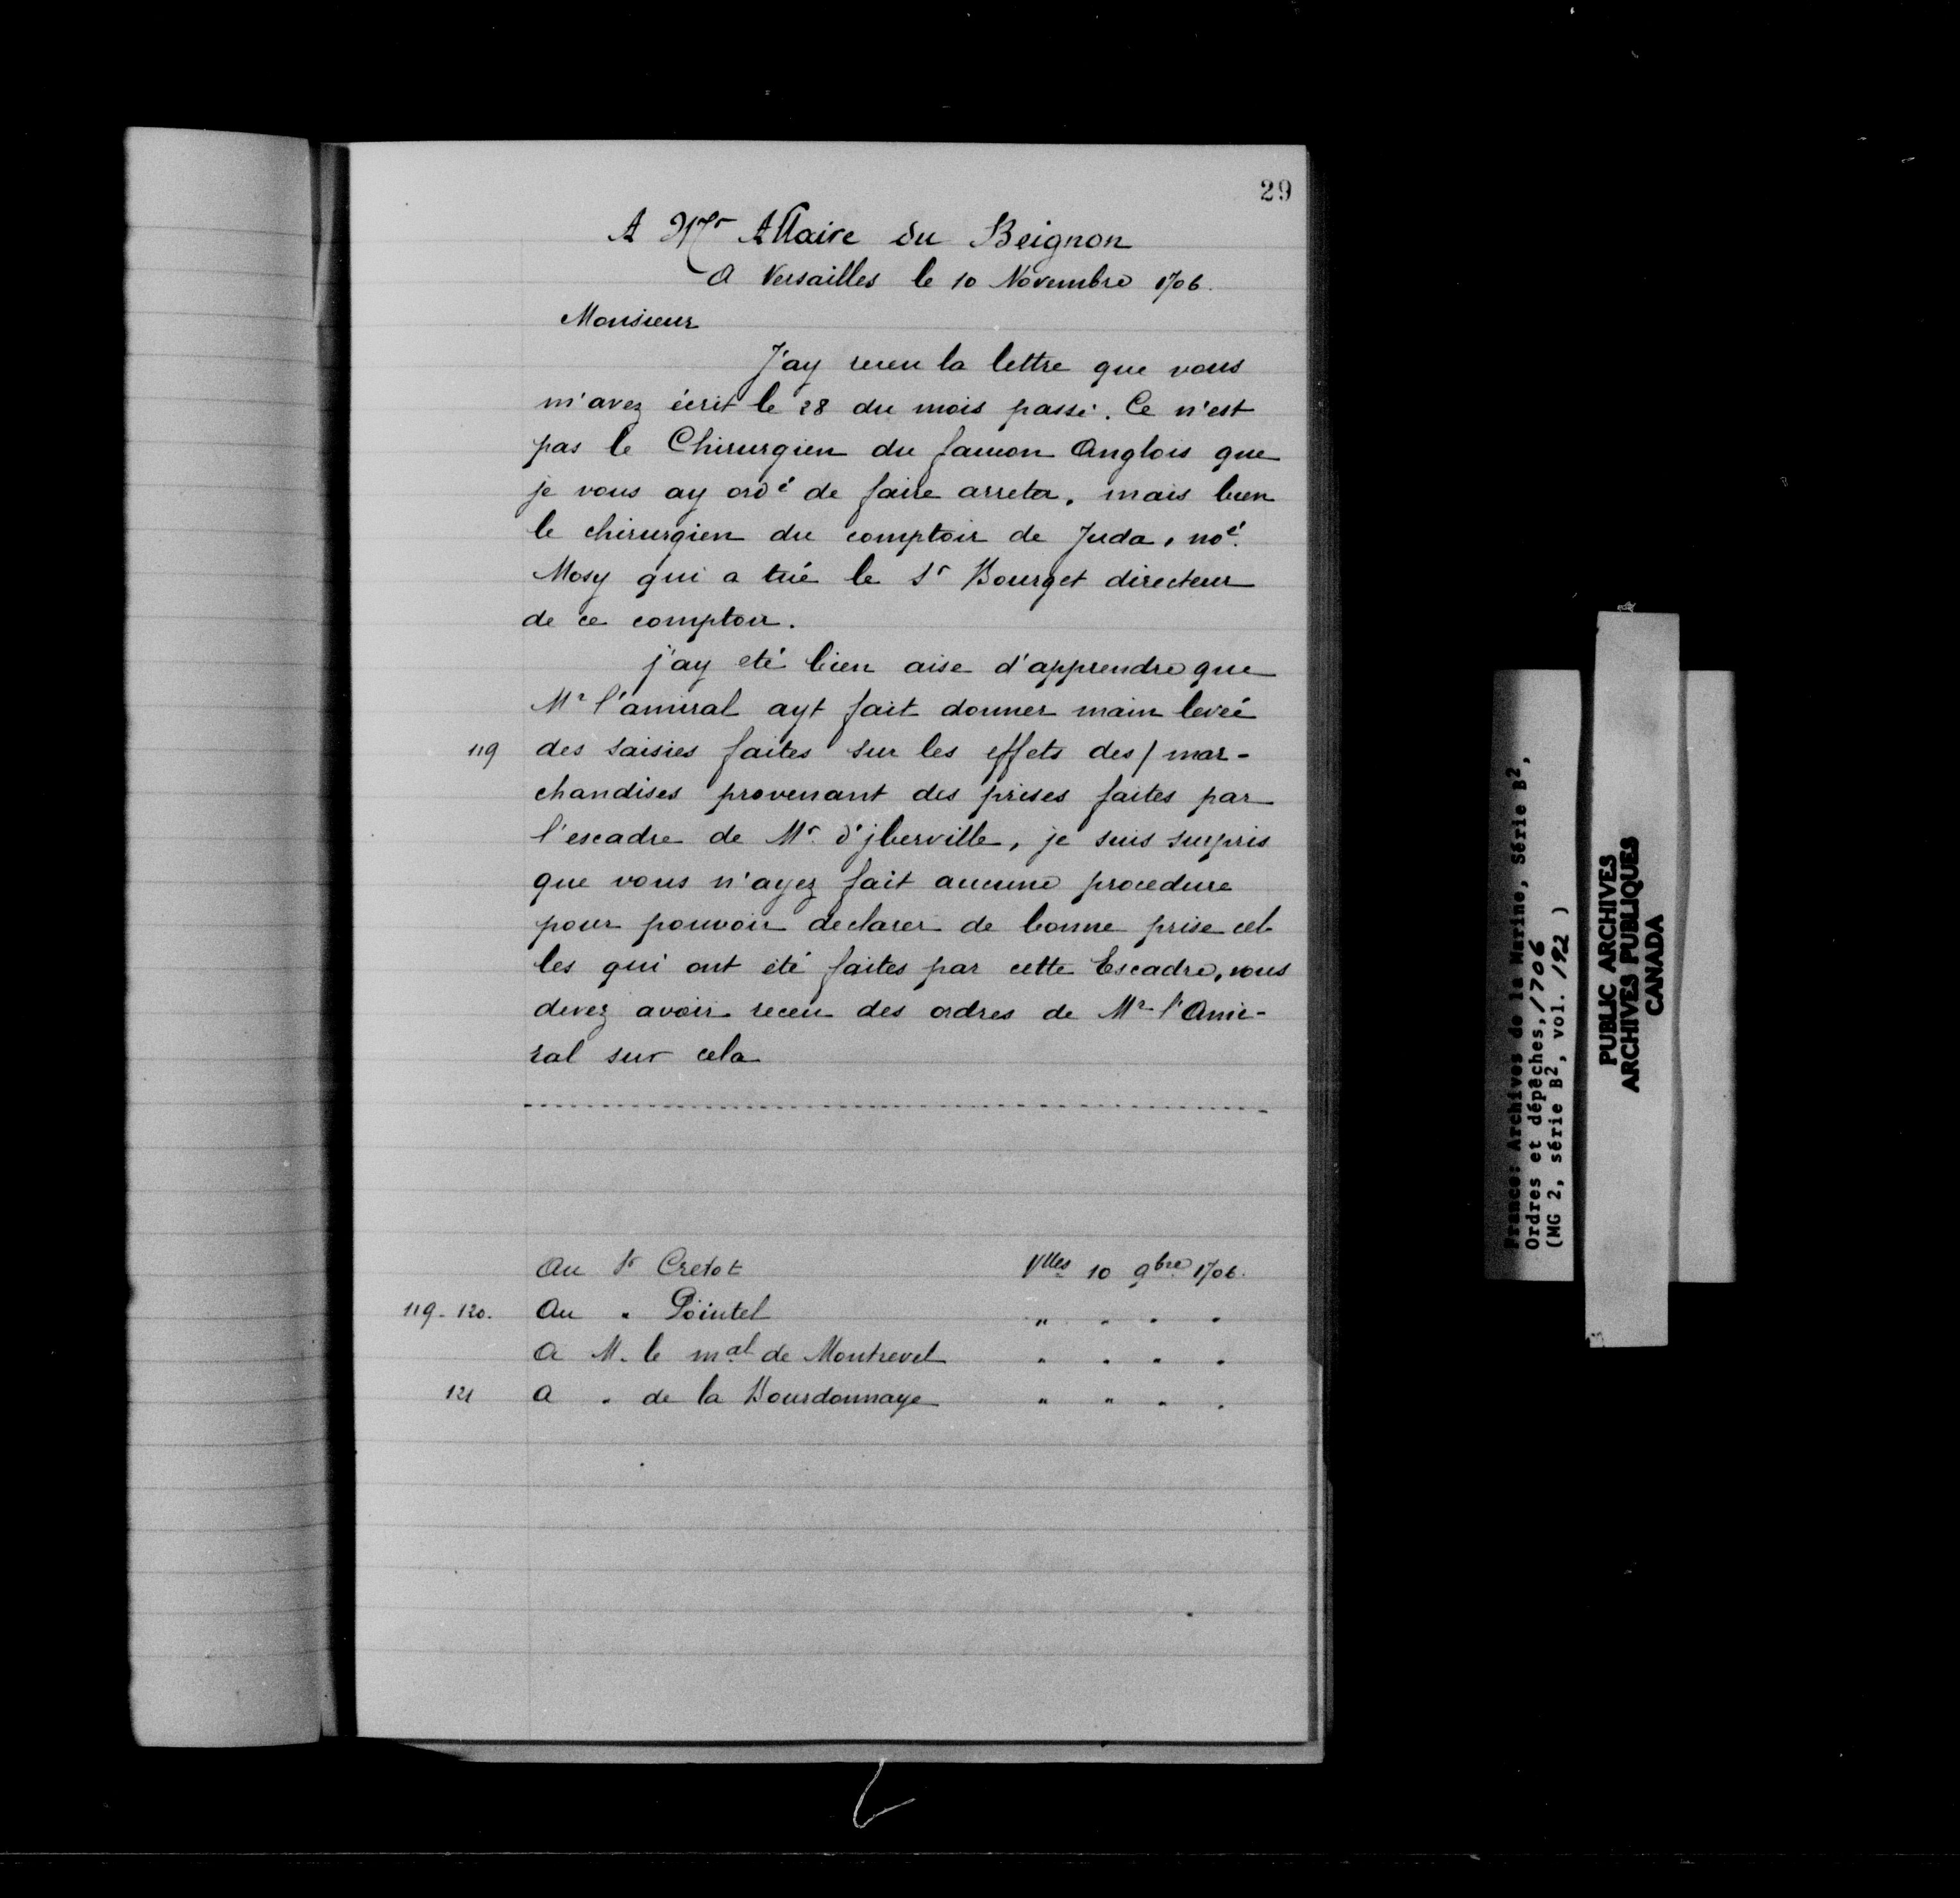 29
A Mr Allaire du Beignon
A Versailles le 10 Novembre 1706.
Monsieur
J'ay receu la lettre que vous
m'avez écrit le 28 du mois passé. Ce n'est
pas le Chirurgien du faucon Anglois que
je vous ay ordé de faire arreter, mais bien
le chirurgien du comptoir de Juda, noé.
Mosy qui a tué le Sr Bourget directeur
de ce comptoir.
j'ay eté bien aise d'apprendre que
Mr l'amiral ayt fait donner main levée
119 des saisies faites sur les effets des / mar-
chandises provenant des prises faites par
l'escadre de Mr. d'jberville, je suis surpris
que vous n'ayez fait aucune procedure
pour pouvoir declarer de bonne prise cel
les qui ont été faites par cette Escadre, vous
devez avoir receu des ordres de Mr l'Ami-
ral sur cela
Au Sr Cretot Vlles 10 9bre 1706.
119-120. Au " Pointel " " " "
A M. le mal de Montrevel " " " "
121 A " de la Bourdonnaye " " " "
France: Archives de la Marine, Série B2,
Ordres et dépêches, 1706
(MG 2, série B2, vol. 192 )
PUBLIC ARCHIVES
ARCHIVES PUBLIQUES
CANADA